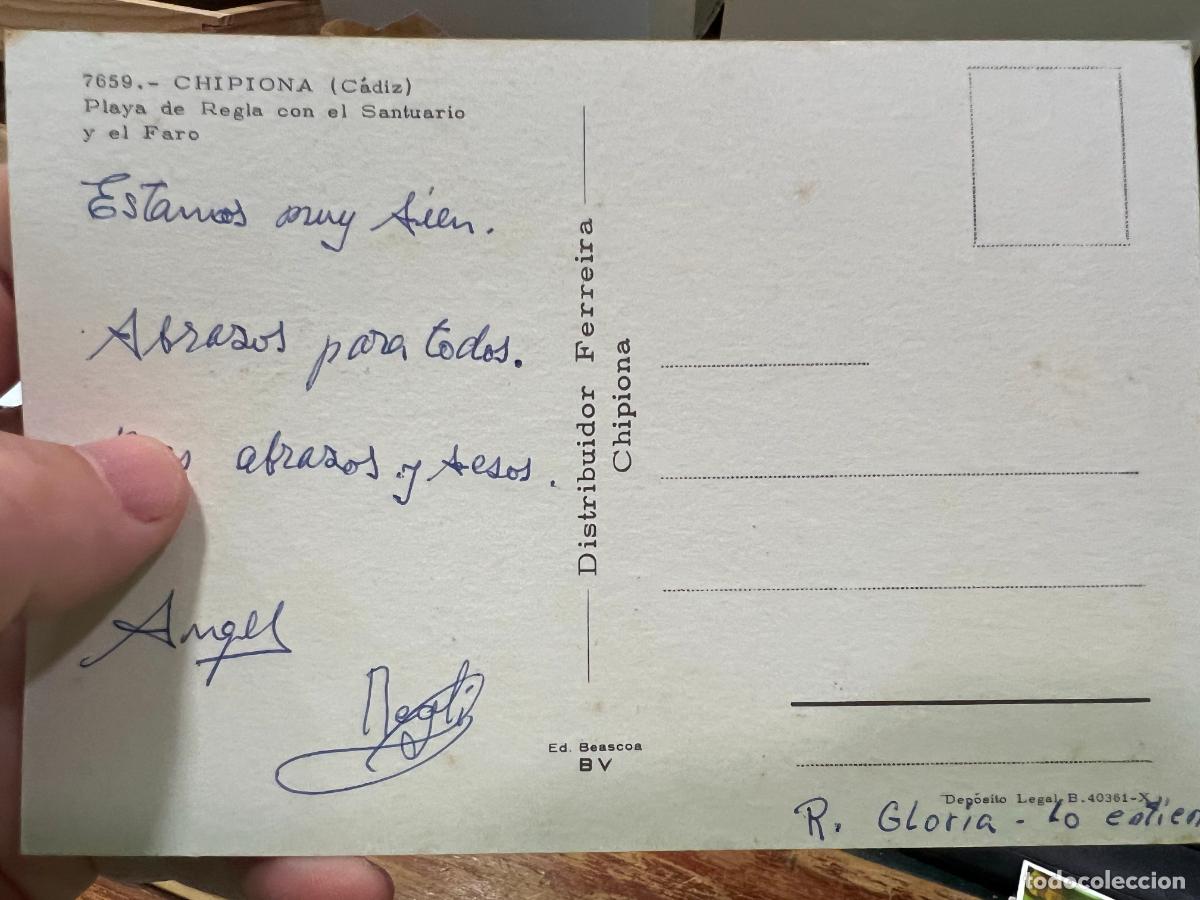 7659.- CHIPIONA (Cádiz)
Playa de Regla con el Santuario
y el Faro
Estamos muy bien.
Abrazos para todos.
abrazos y besos.
Angel
Distribuidor Ferreira
Chipiona
Ed. Beascoa
BV
Depósito Legal B. 40361-X
R. Gloria - lo
todocoleccion